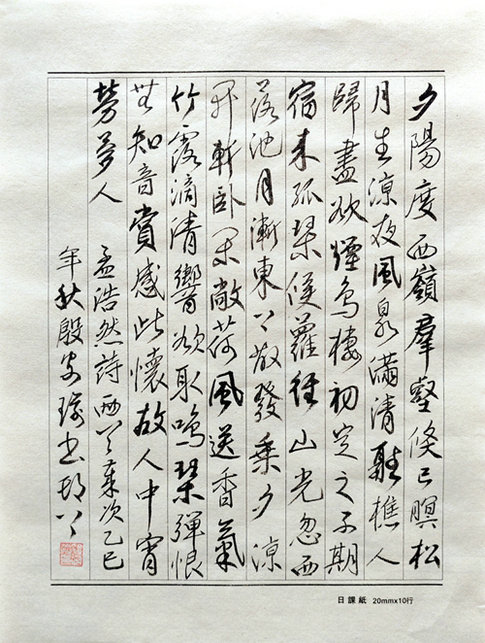 夕陽度西嶺羣壑倏已暝松
月生涼夜風泉滿清聽樵人
歸盡欲煙鳥棲初定之子期
宿來孤琴候蘿徑山光忽西
落池月漸東上散發乘夕涼
開軒臥閑敞荷風送香氣
竹露滴清響欲取鳴琴彈恨
無知音賞感此懷故人中宵
勞夢人
孟浩然詩兩首歲次乙巳
年秋殷
日課紙 20mmx10行